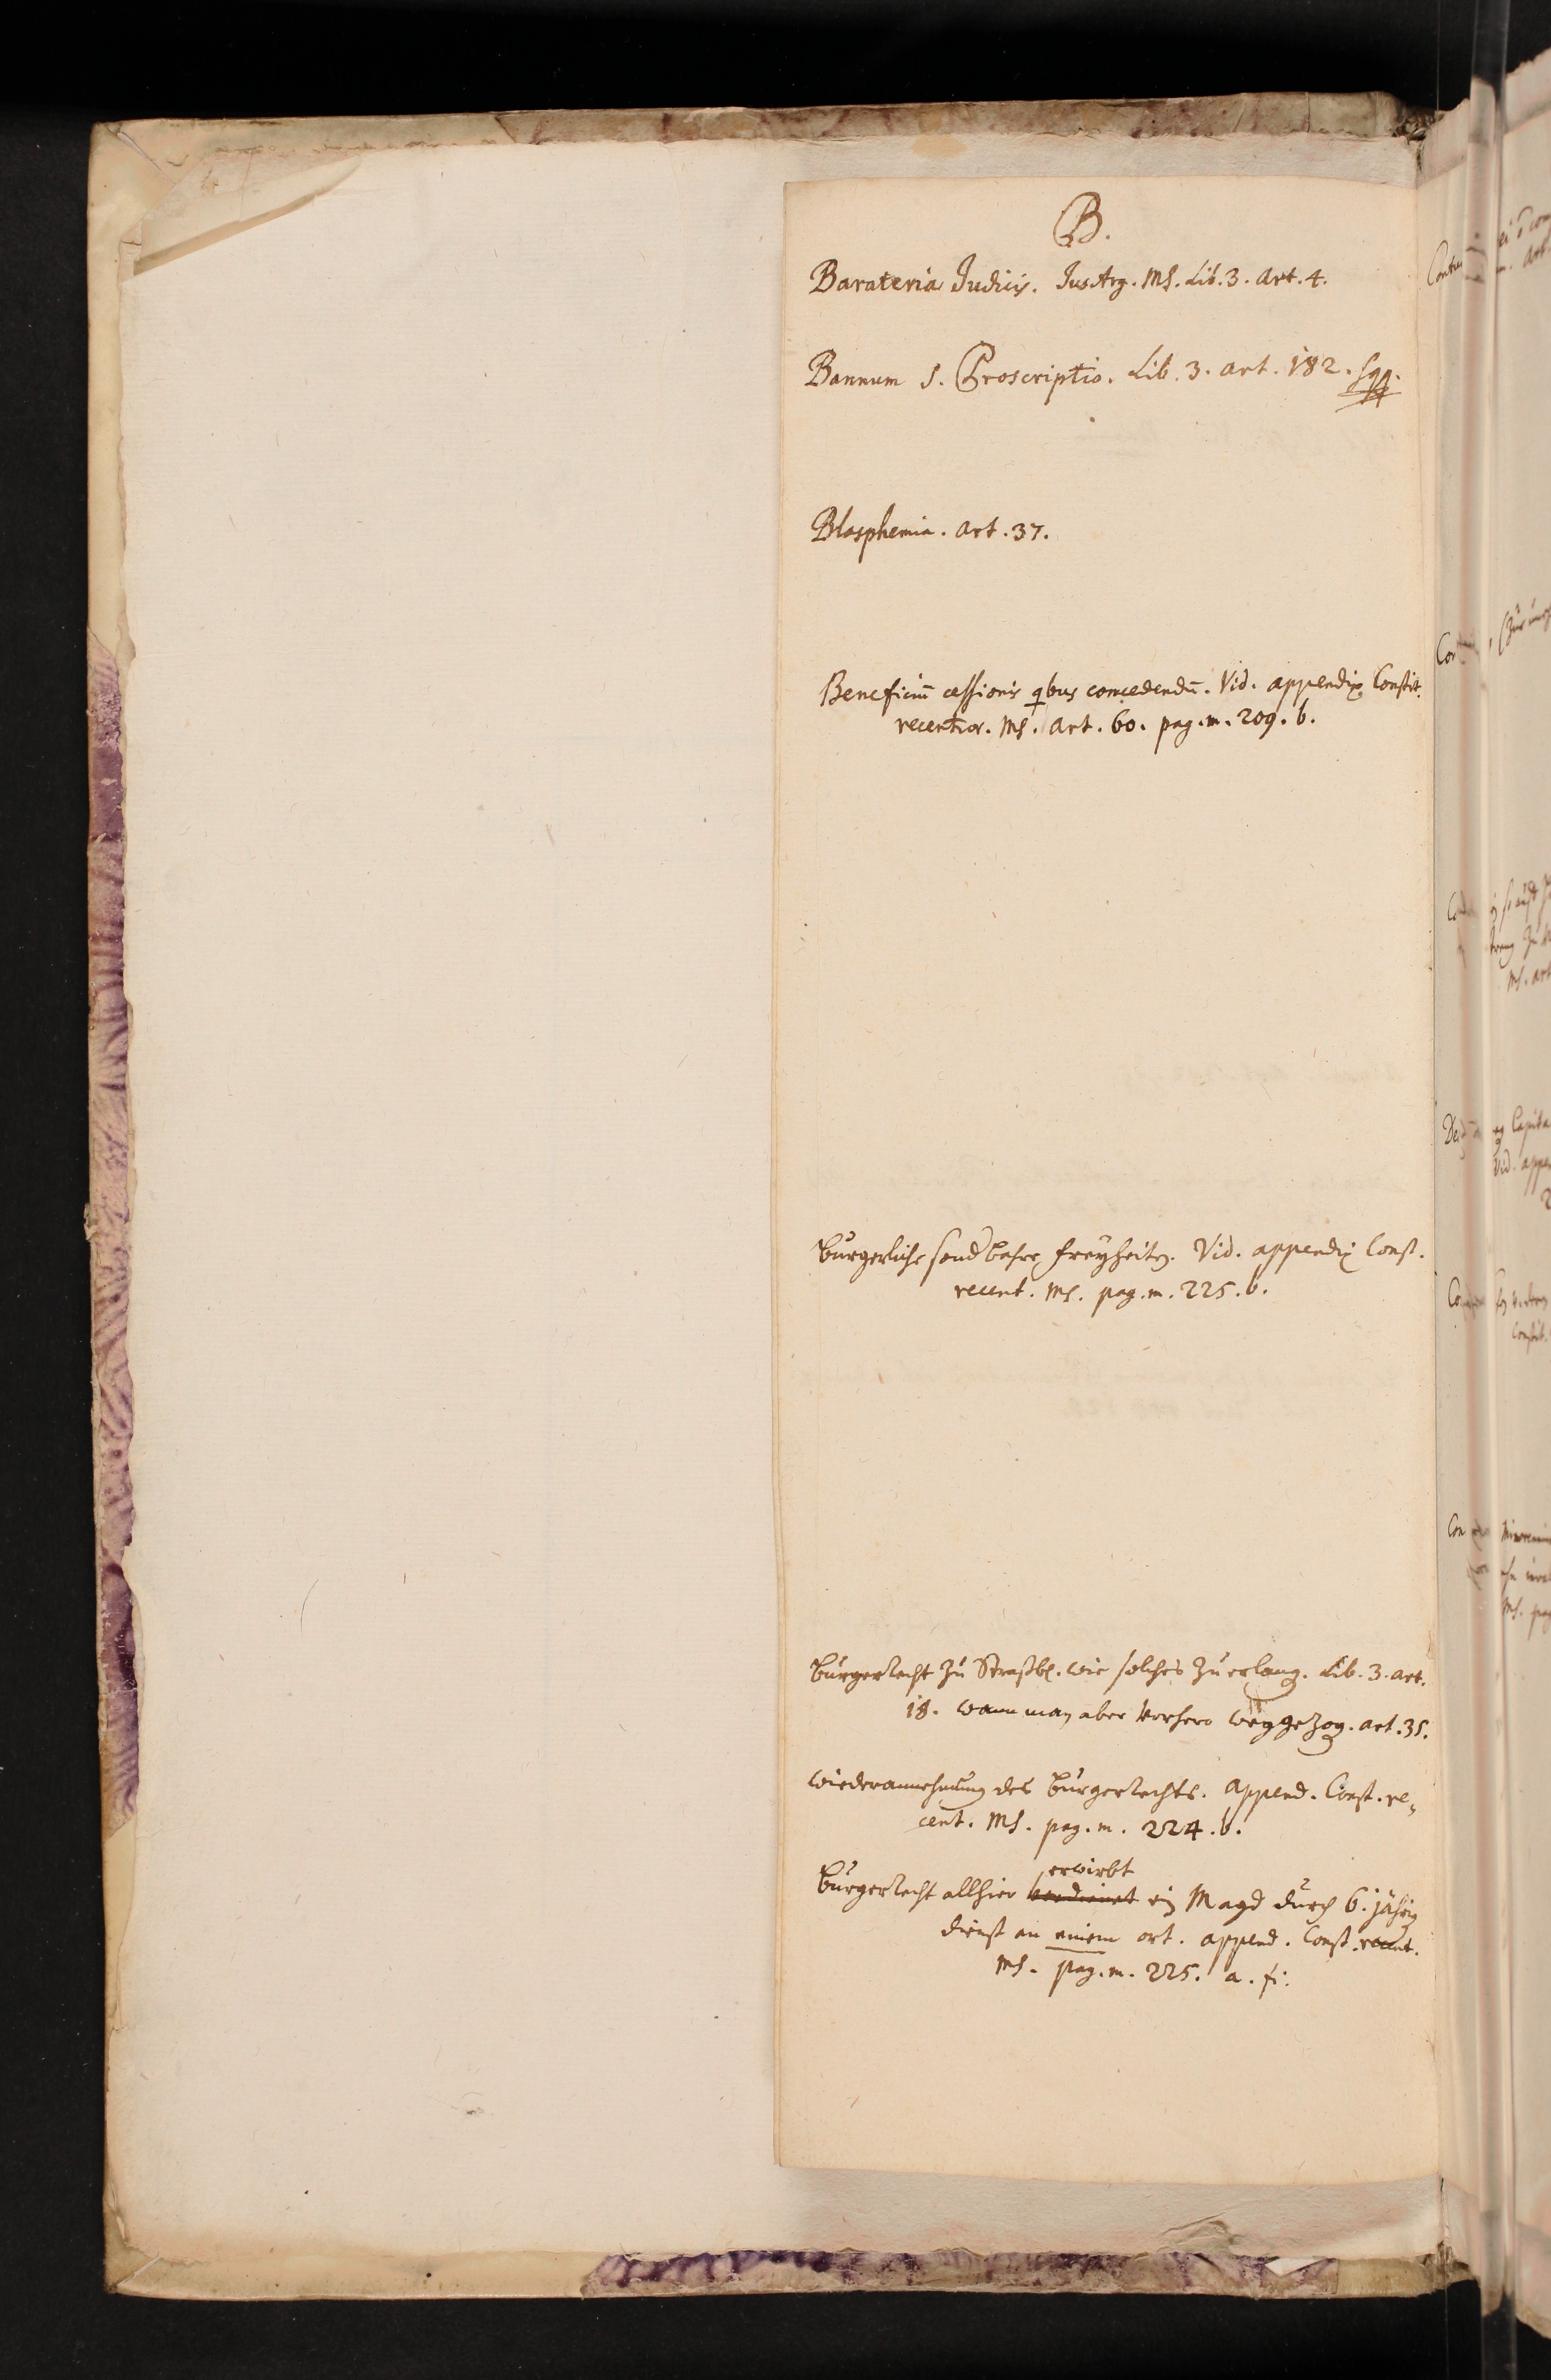 B.
Barateria Judicis. Jus Arg. Ms. Lib. 3. art. 4.
Bannum s. Proscriptio. Lib. 3. art. 182. sqq.
Blasphemia. art. 37.
Beneficiū cessionis qbus concedendū. Vid. appendix Constit.
recentior. Ms. art. 60. pag. m. 209. b.
Burgerliche sondbahre freyheiten. Vid. appendix Const.
recent. Ms. pag. m. 225. b.
Burgerrecht zu Straßb. wie solches zu erlang. Lib. 3. art.
18. wann man aber vorhero weggezog. art. 35.
wiederannehmung des Burgerrechts. append. Const. re„
cent. Ms. pag. m. 224. b.
erwirbt
Burgerrecht allhier verdienet ein Magd durch 6. jährig
dienst an einem ort. append. Const. recent.
Ms. pag. m. 225. a. fi: